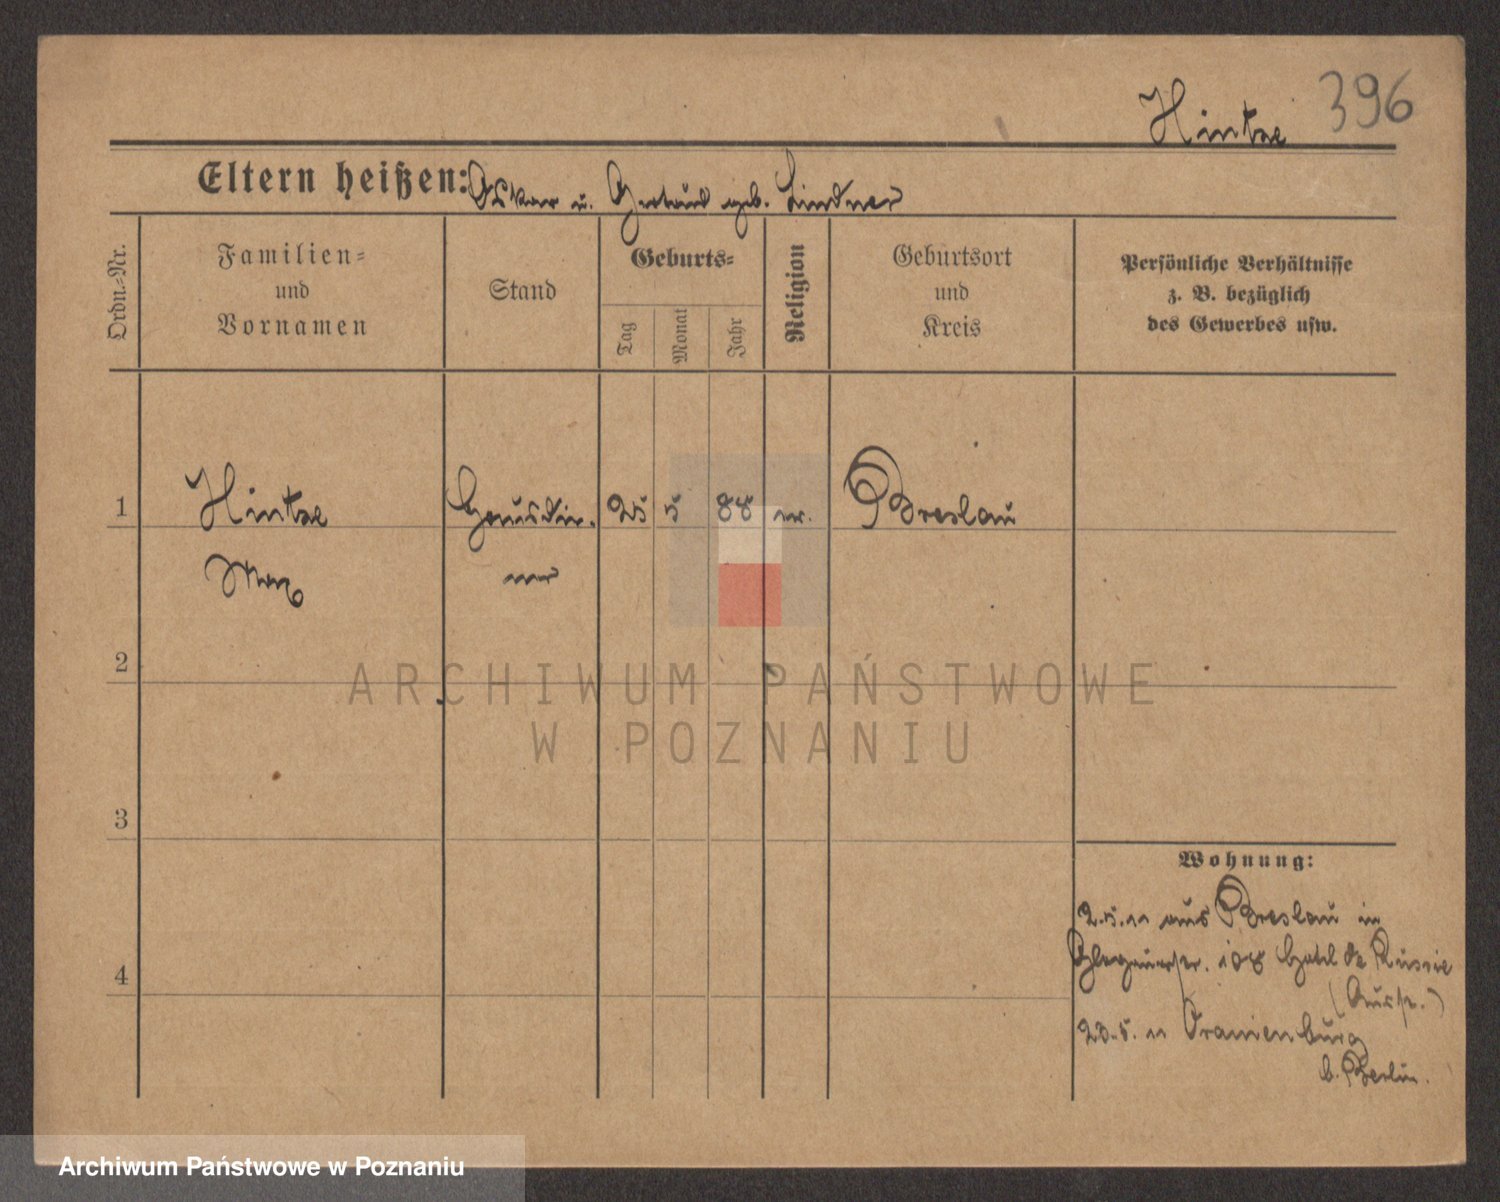 Hintze 396
Eltern heißen: Oskar u. Gertrud geb. Lindner
Ordn.-Nr.
Familien-
und
Vornamen
Stand
Geburts-
Tag
Monat
Jahr
Religion
Geburtsort
und
Kreis
Persönliche Verhältnisse
z. B. bezüglich
des Gewerbes usw.
1 Hintze Hausdie- 25 5 88 ev. Breslau
Max ner
2
3
4
Wohnung:
2.5.11 aus Breslau in
Glogauerstr. 108 Hotel de Russie
(Ausst.)
23.5.11 Oranienburg
b. Berlin.
ARCHIWUM PAŃSTWOWE
W POZNANIU
Archiwum Państwowe w Poznaniu